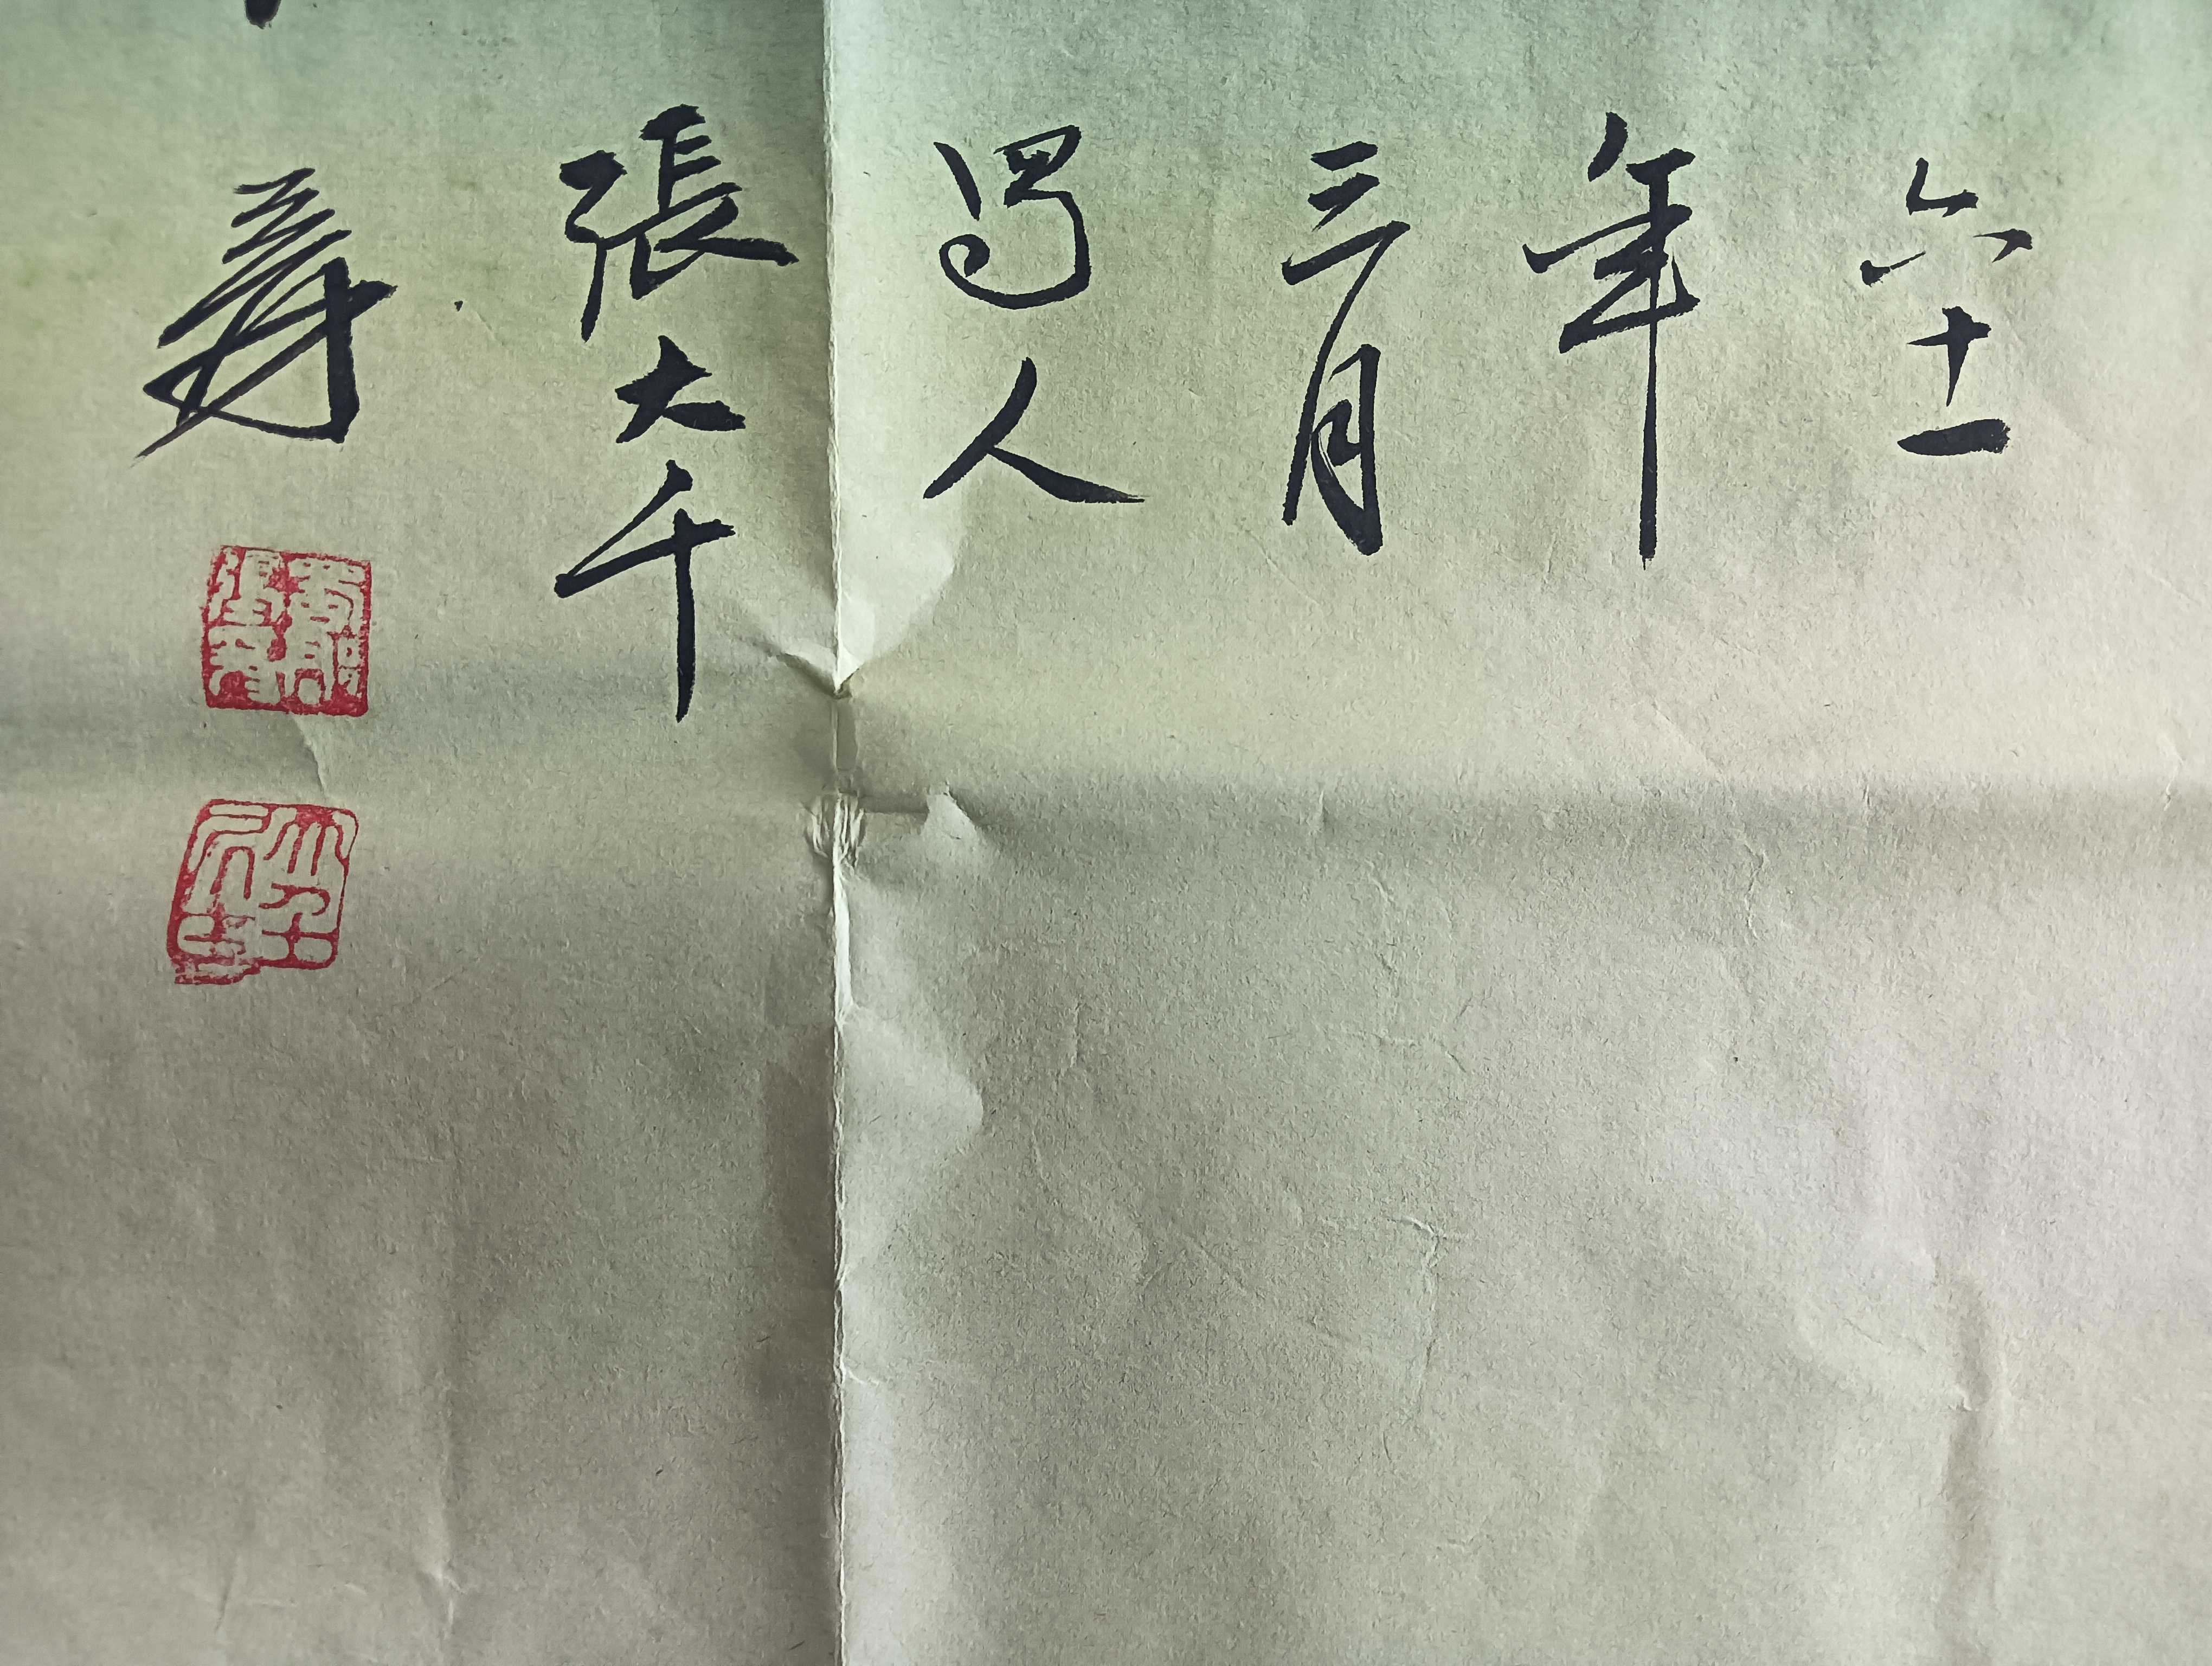 六十一
年
三月
蜀人
張大千
爰